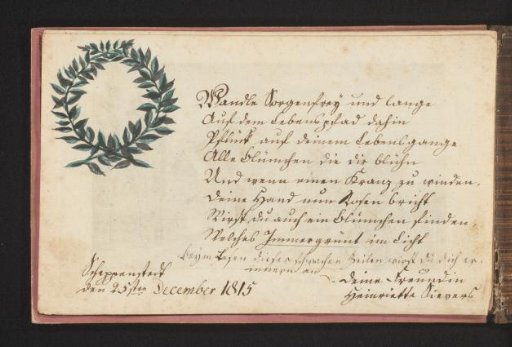 Wandle Sorgenfrey und lange
Auf dem Lebenspfad dahin
Pflück auf deinem Lebensgange
Alle Blümchen die dir blühn
Und wenn einen Kranz zu winden,
Deine Hand nun Rosen bricht
Wirst du auch ein Blümchen finden,
Welches Immergrünt im
beym Lesen dieser schwachen Zeilen wirst du dich er,
innern an
Scheppenstedt
den 25ten December 1815
deine Freundin
Heinriette Sievers